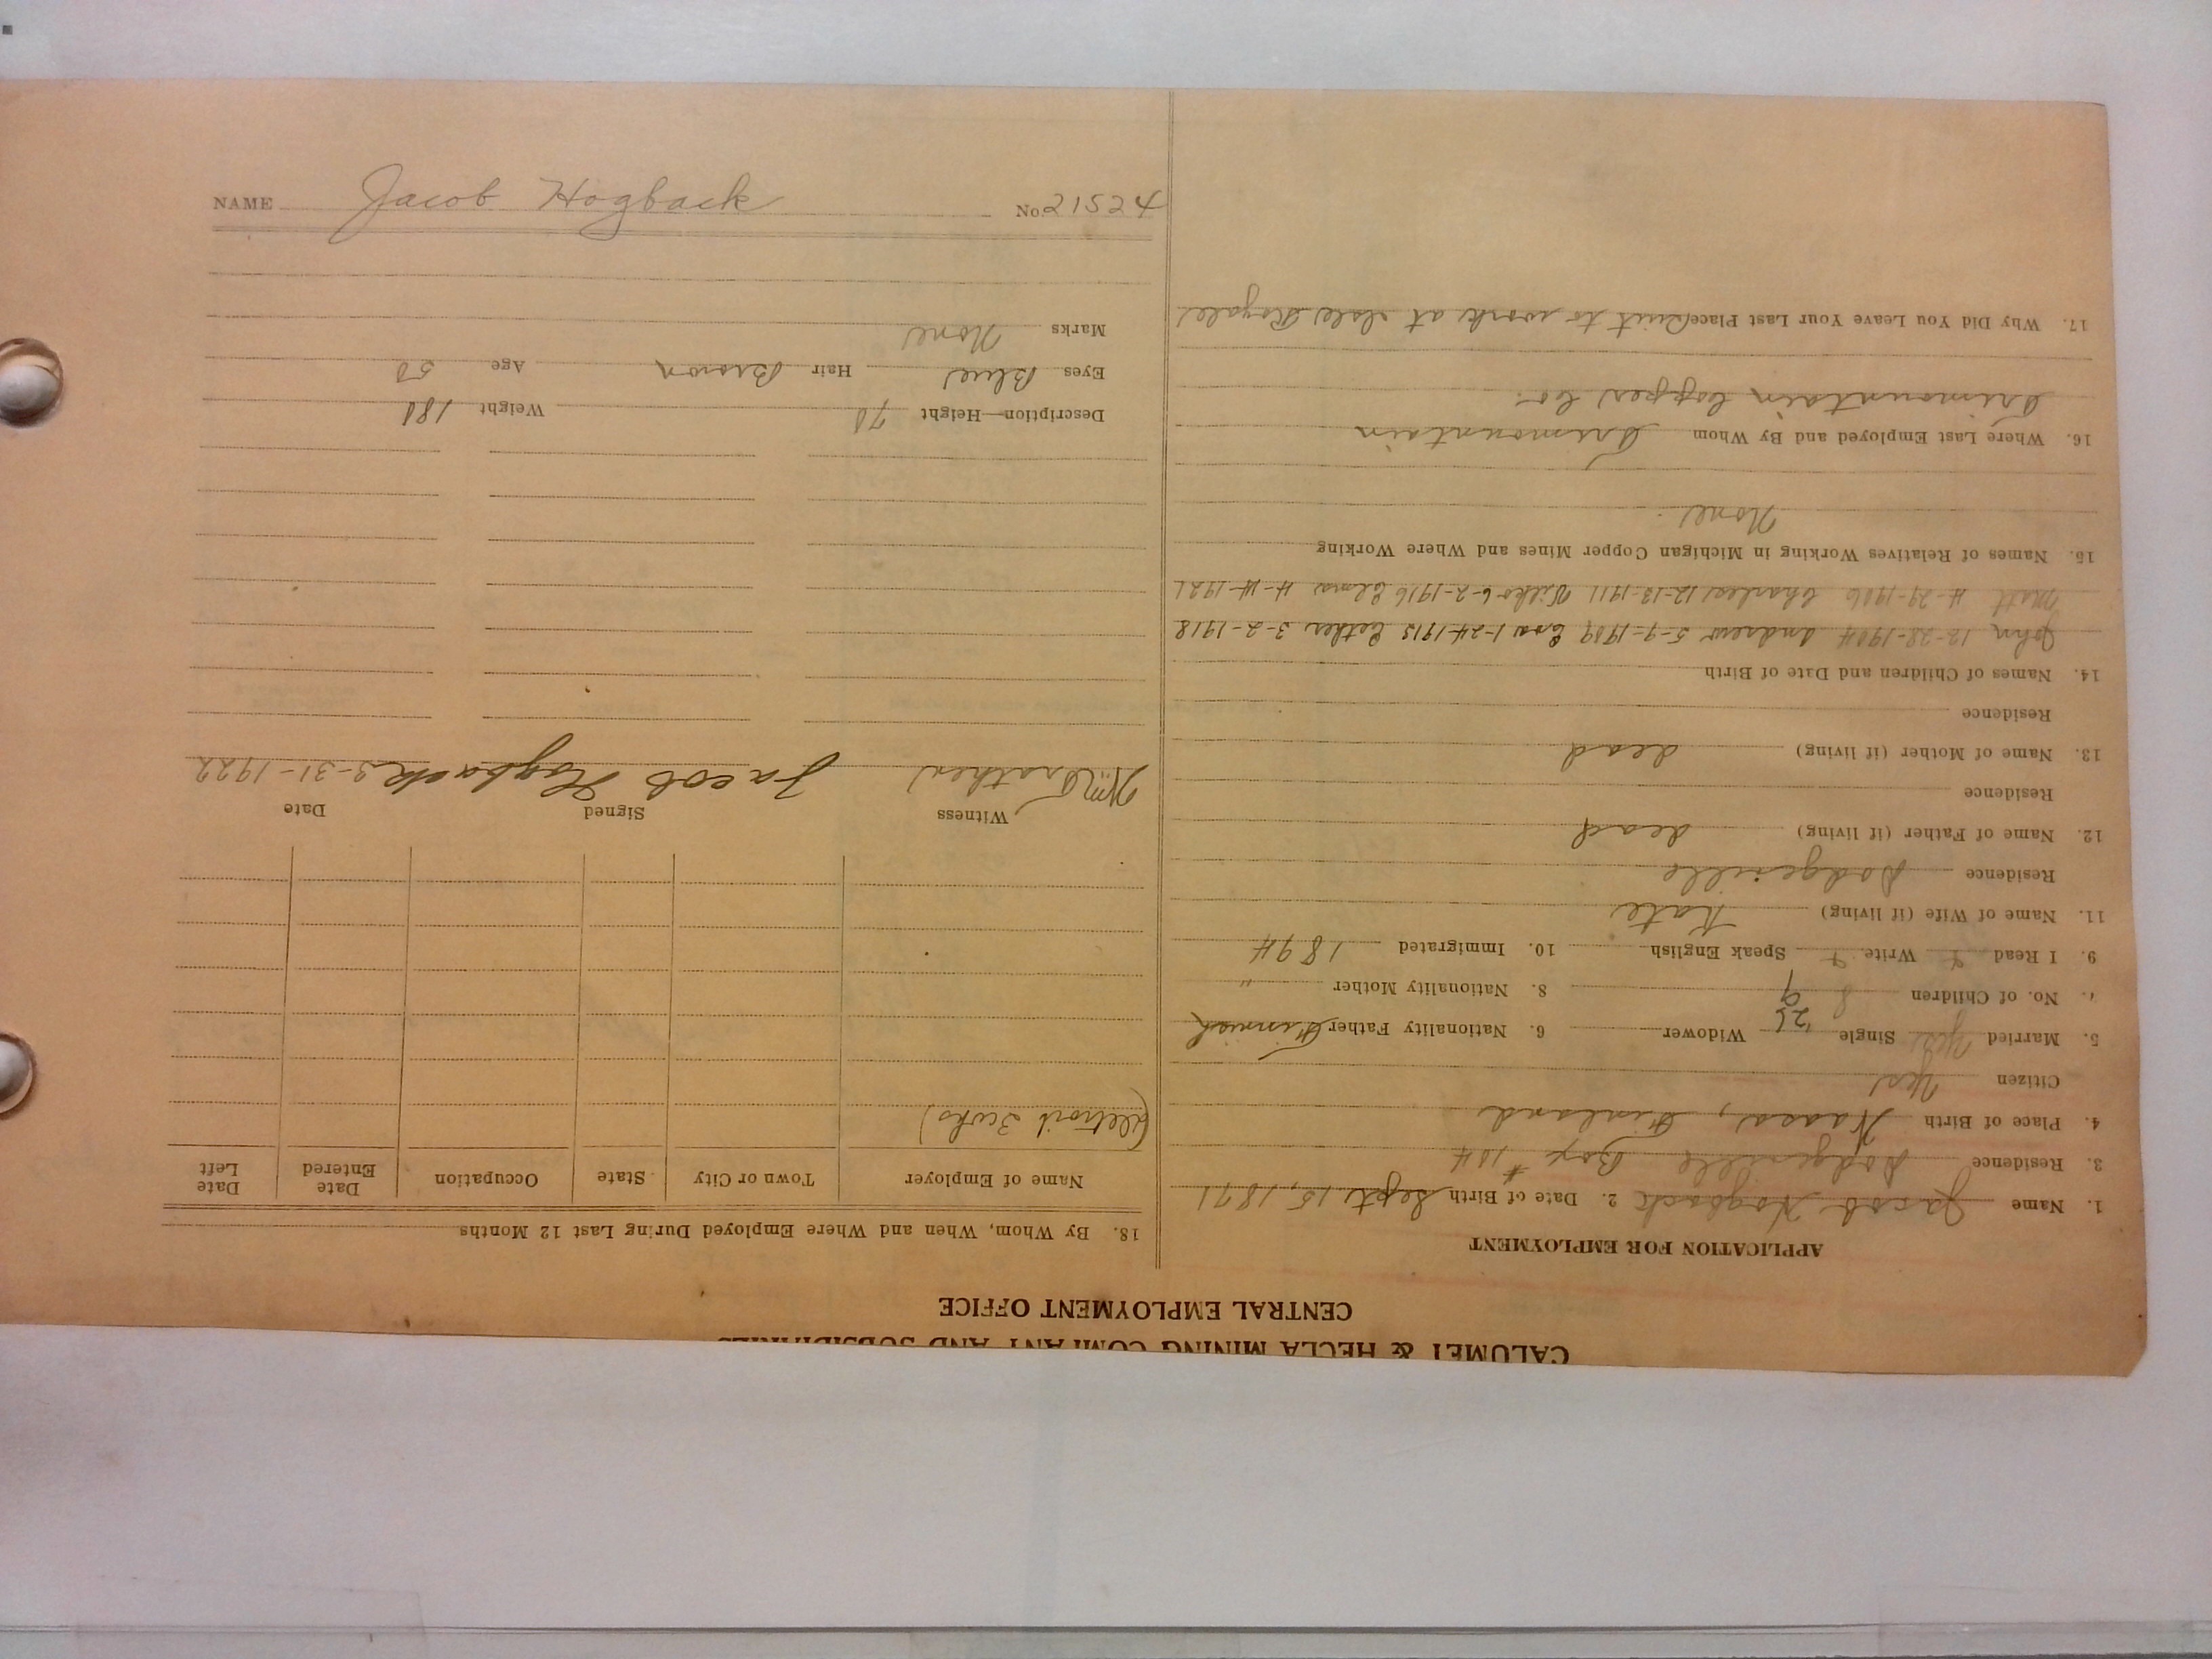 CALUMET & HECLA MINING COMPANY AND SUBSIDIARIES
CENTRAL EMPLOYMENT OFFICE
APPLICATION FOR EMPLOYMENT
1. Name Jacob Hogback 2. Date of Birth Sept. 15, 1871
3. Residence Dodgeville Box # 104
4. Place of Birth Wasa, Finland
Citizen Yes
5. Married Yes Single '25 Widower 6. Nationality Father Finnish
7. No. of Children 8 9 8. Nationality Mother "
9. I Read Write Speak English 10. Immigrated 1894
11. Name of Wife (if living) Kate
Residence Dodgeville
12. Name of Father (if living) dead
Residence
13. Name of Mother (if living) dead
Residence
14. Names of Children and Date of Birth
John 12-28-1904 Andrew 5-9-1909 1-24-1913 3-2-1918
Matt 4-29-1906 Charles 12-13-1911 6-2-1916 Elma 4-14-1921
15. Names of Relatives Working in Michigan Copper Mines and Where Working
None
16. Where Last Employed and By Whom Trimountain
Trimountain Copper Co.
17. Why Did You Leave Your Last Place Quit to work at Isle Royale
18. By Whom, When and Where Employed During Last 12 Months
Name of Employer Town or City State Occupation Date Entered Date Left
(Detroit 3 wks)
Witness Signed Date
Jacob Hogback 3-31-1922
Description—Height 70 Weight 180
Eyes Blue Hair Brown Age 50
Marks None
NAME Jacob Hogback No. 21524